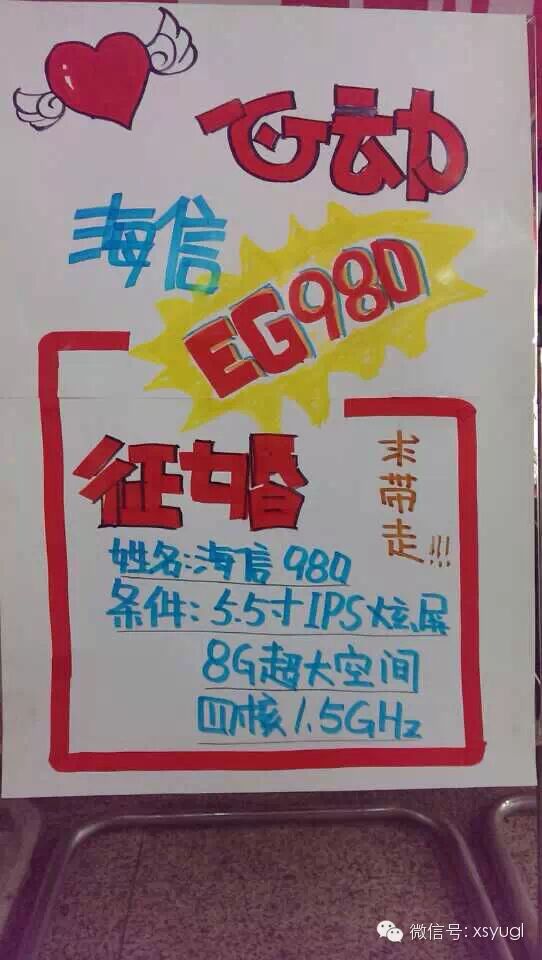 动
海信
EG980
征婚
求带走!!!
姓名:海信 980
条件:5.5寸IPS炫屏
8G超大空间
四核1.5GHz
微信号: xsyugl